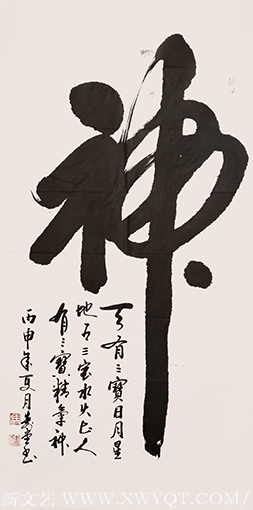 神
天有三寶日月星
地有三宝水火土人
有三寶精氣神
丙申年夏月
新文艺 WWW.XWYQT.COM/